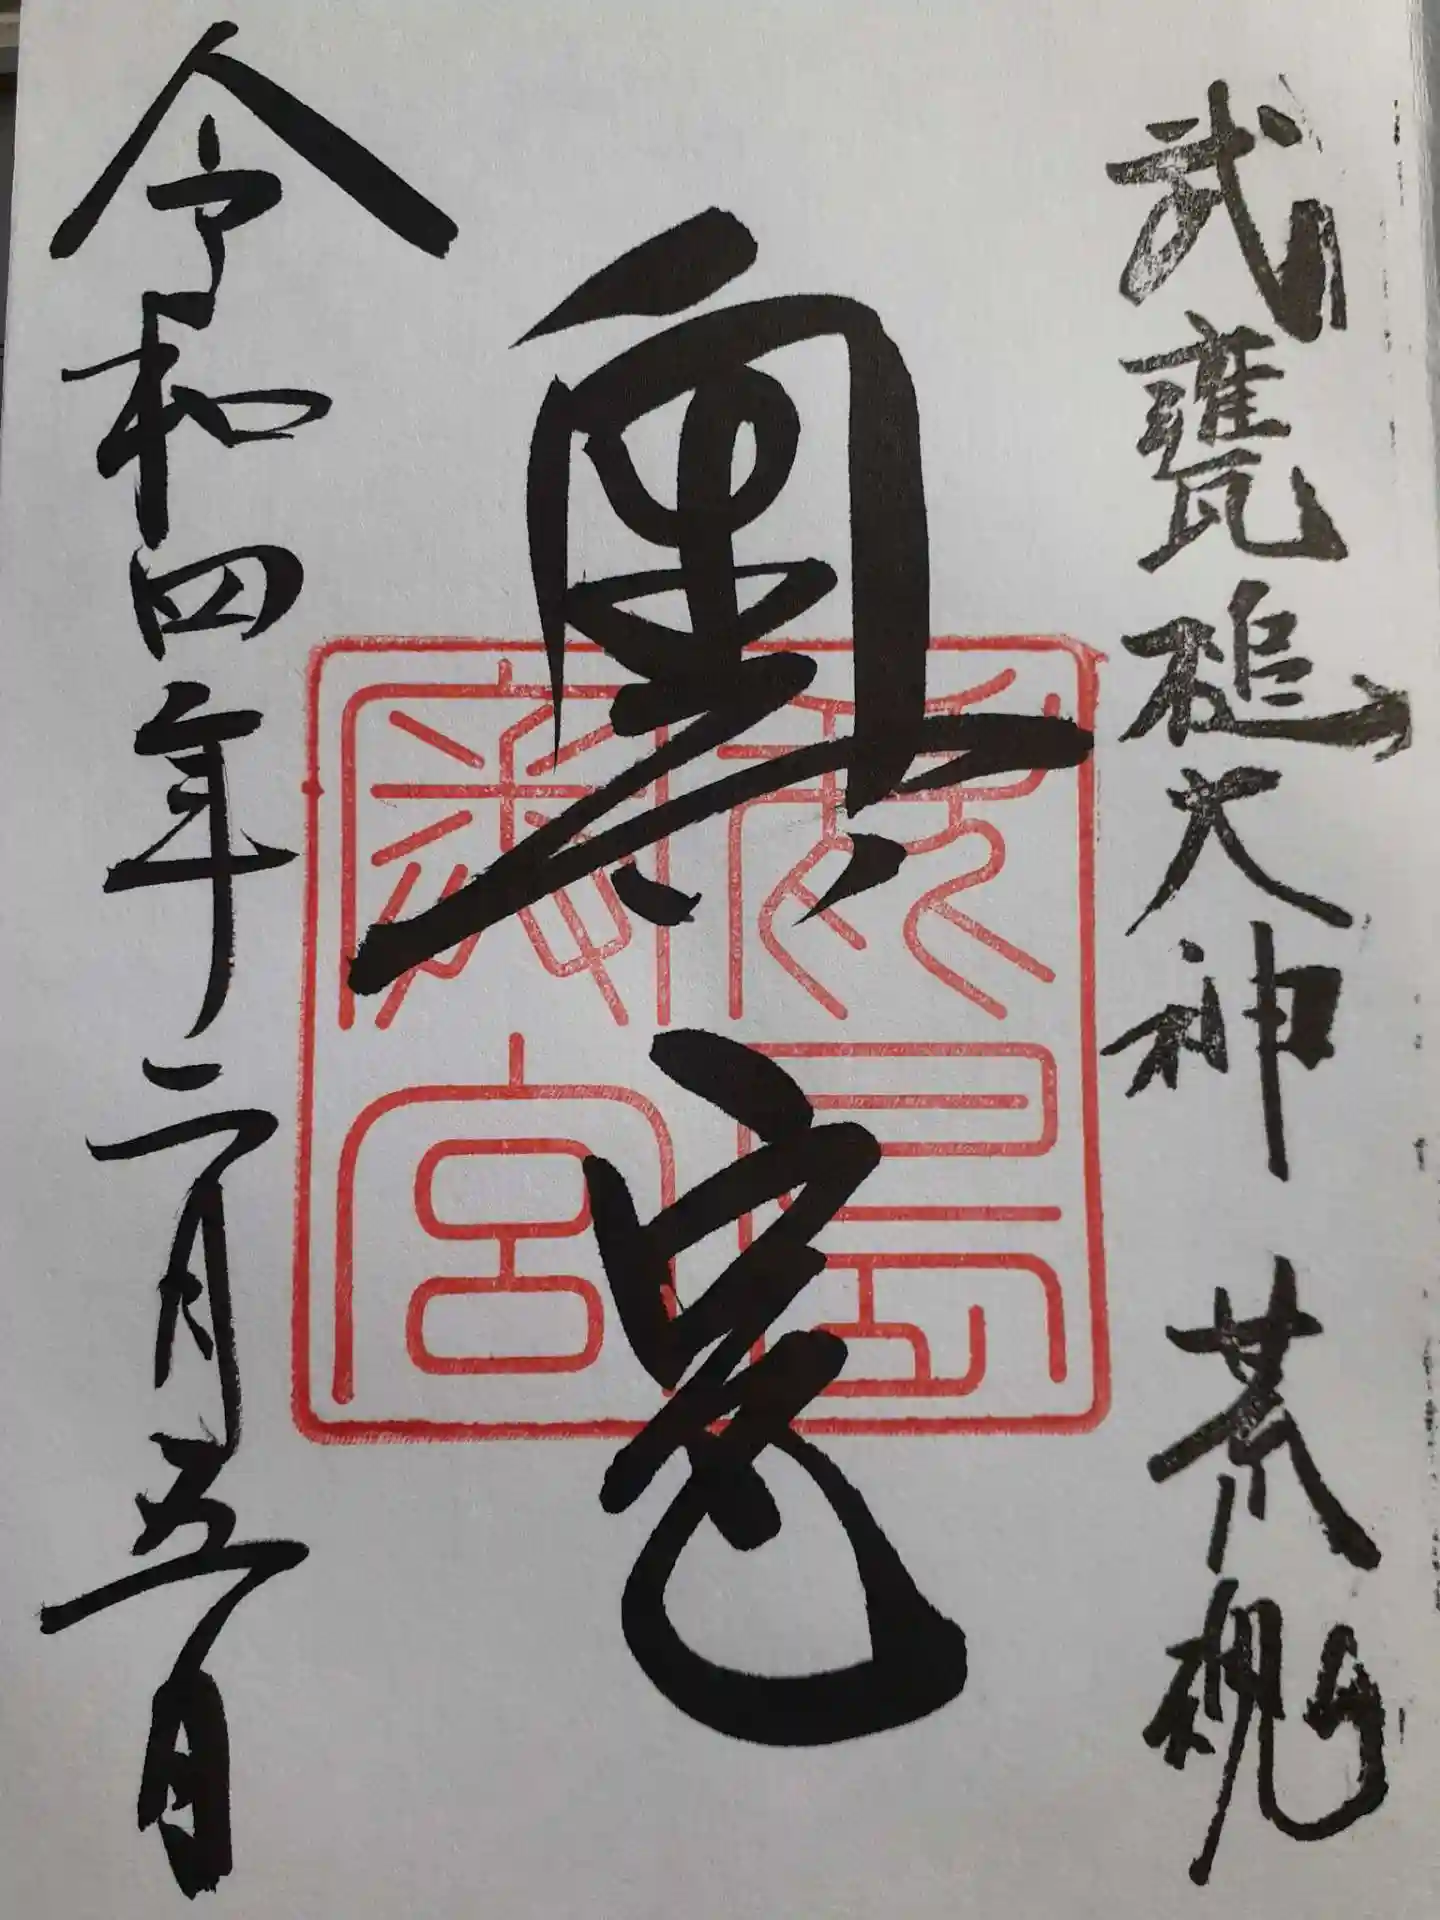 武甕槌大神 荒魂
奥宮
鹿島奥宮
令和四年二月五日